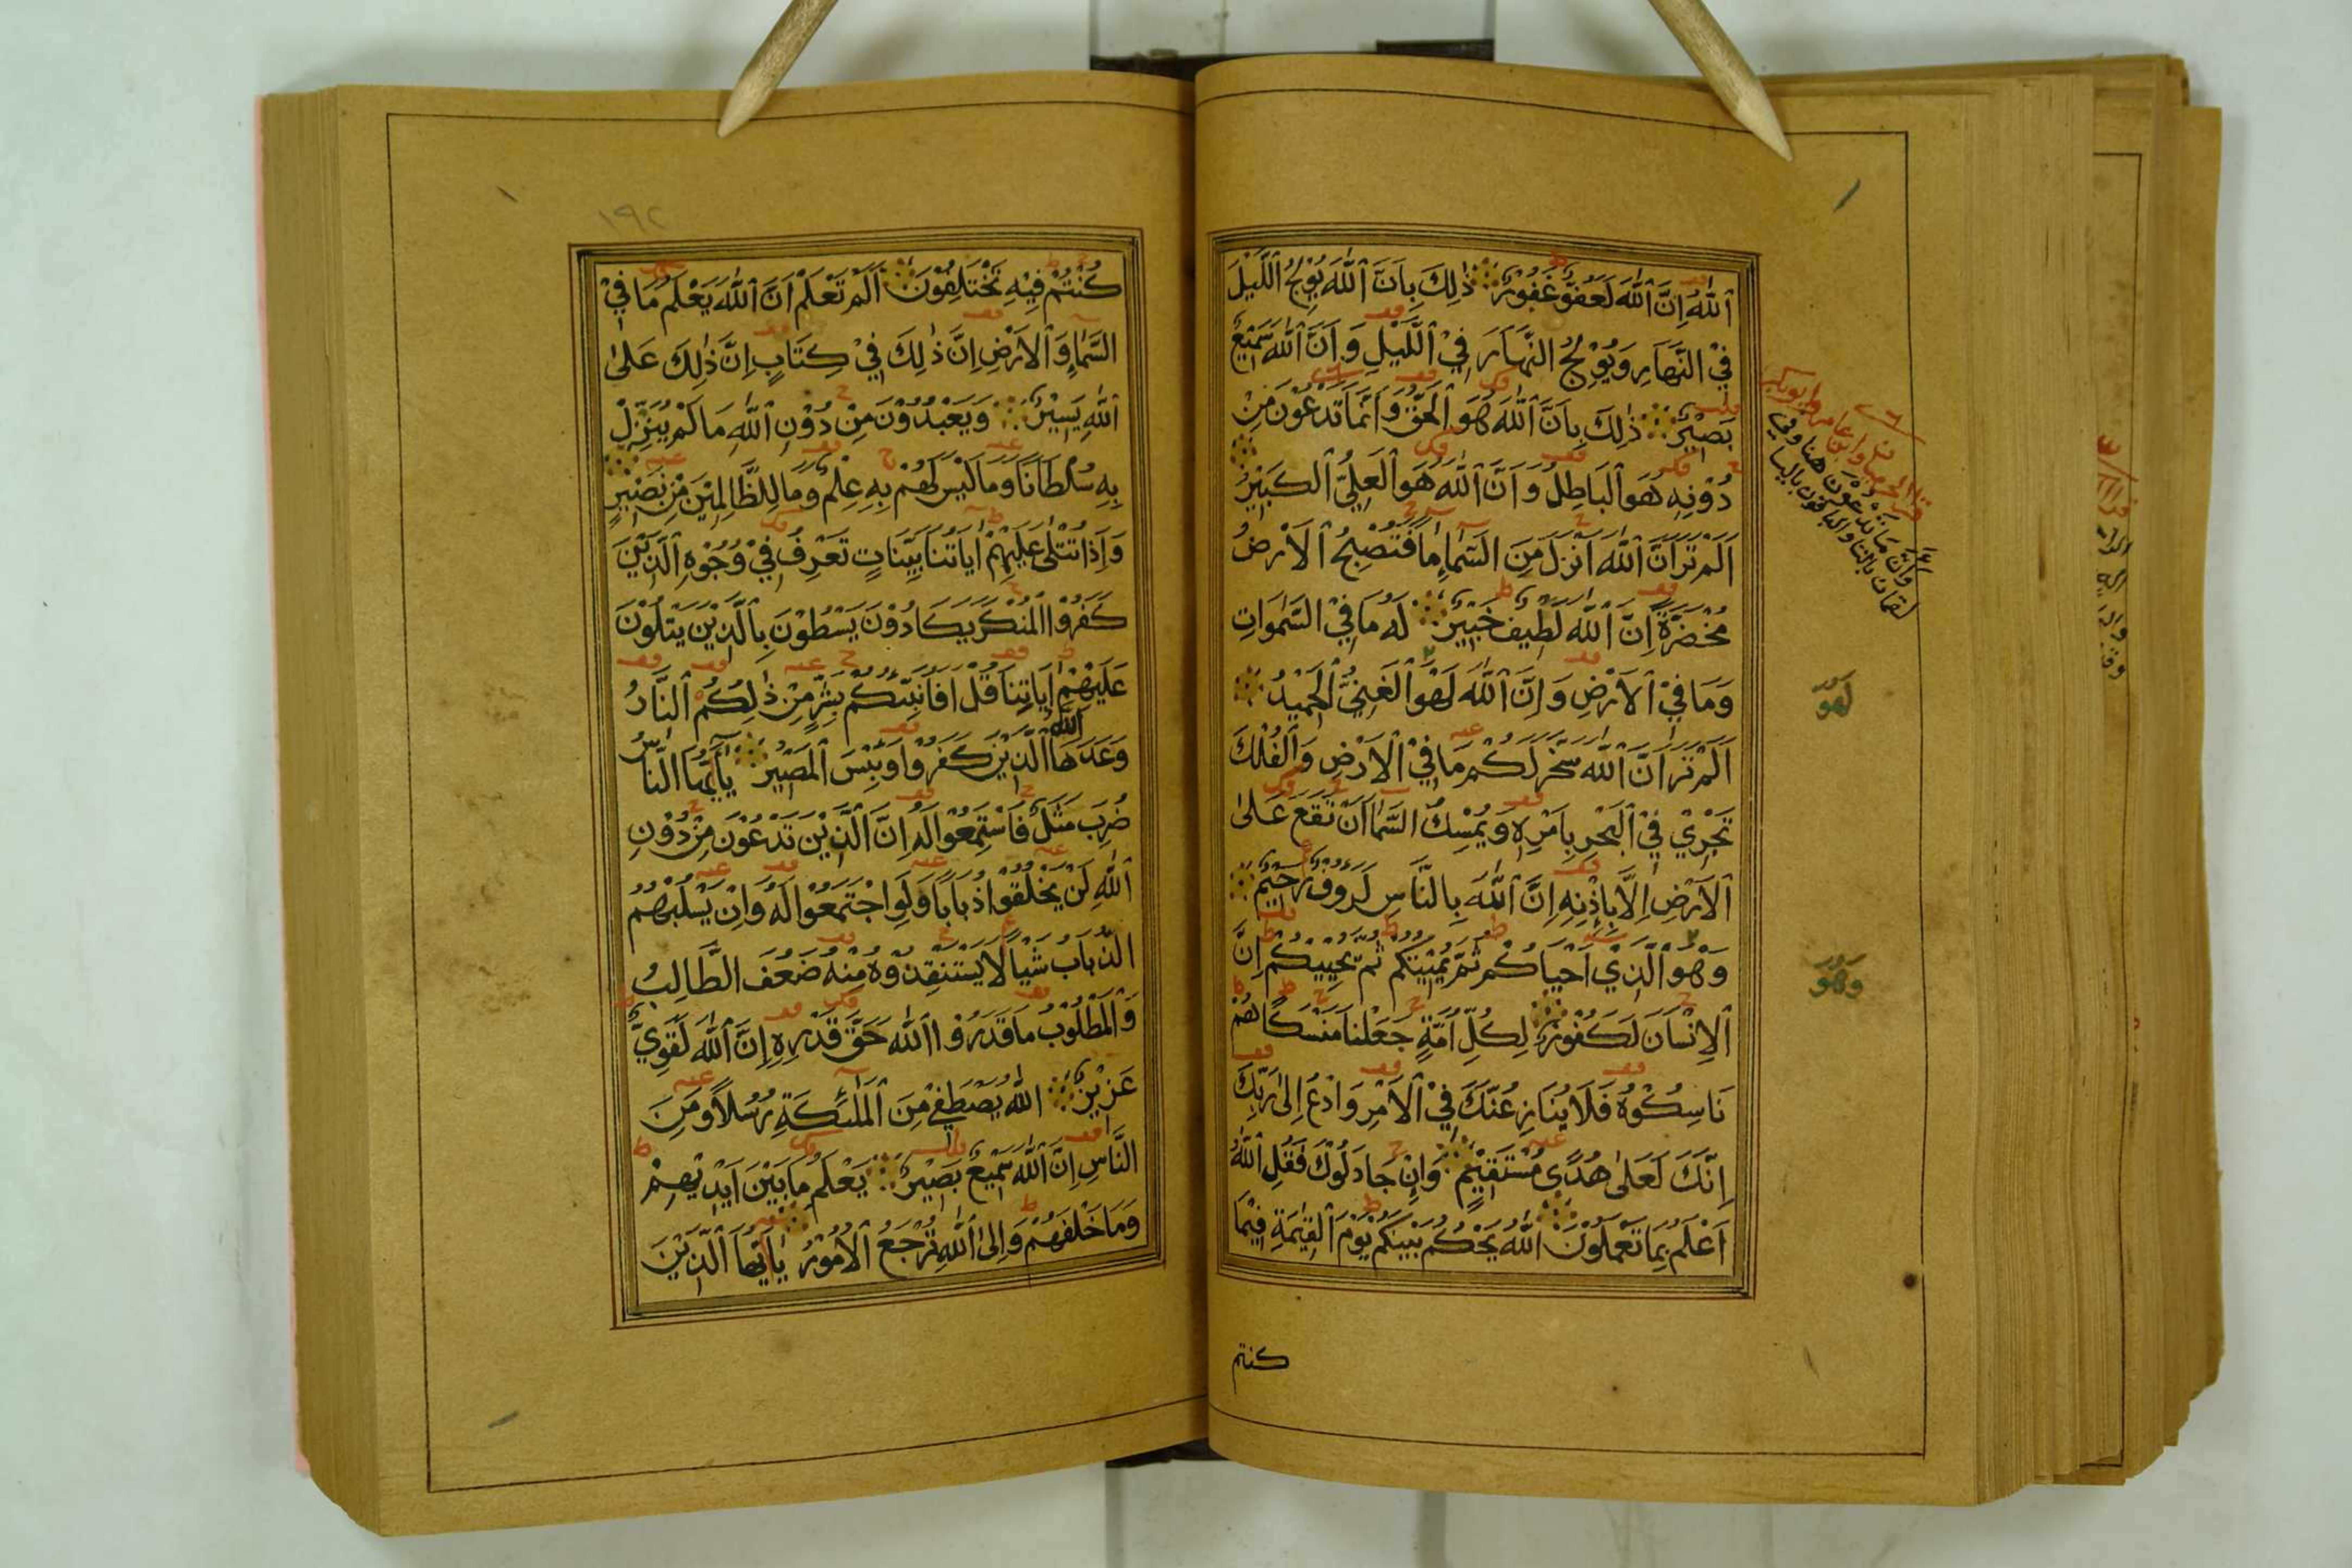 ٱللَّهُ اِنَّ ٱللَّهَ لَعَفُوٌّ غَفُوْرٌ ذٰلِكَ بِاَنَّ ٱللَّهَ يُوْلِجُ ٱللَّيْلَ
فِيْ النَّهَارِ وَيُوْلِجُ النَّهَارَ فِيْ ٱللَّيْلِ وَاَنَّ ٱللَّهَ سَمِيْعٌ
بَصِيْرٌ ذٰلِكَ بِاَنَّ ٱللَّهَ هُوَ ٱلْحَقُّ وَاَنَّمَا تَدْعُوْنَ مِنْ
دُوْنِهِ هُوَ ٱلْبَاطِلُ وَاَنَّ ٱللَّهَ هُوَ ٱلْعَلِيُّ ٱلْكَبِيْرُ
اَلَمْ تَرَ اَنَّ ٱللَّهَ اَنْزَلَ مِنَ السَّمَاءِ مَاءً فَتُصْبِحُ ٱلْاَرْضُ
مُخْضَرَّةً اِنَّ ٱللَّهَ لَطِيْفٌ خَبِيْرٌ لَهُ مَا فِيْ السَّمٰوَاتِ
وَمَا فِيْ ٱلْاَرْضِ وَاِنَّ ٱللَّهَ لَهْوَ ٱلْغَنِيُّ ٱلْحَمِيْدُ
اَلَمْ تَرَ اَنَّ ٱللَّهَ سَخَّرَ لَكُمْ مَا فِيْ ٱلْاَرْضِ وَٱلْفُلْكَ
تَجْرِيْ فِيْ ٱلْبَحْرِ بِاَمْرِهِ وَيُمْسِكُ السَّمَاءَ اَنْ تَقَعَ عَلٰى
ٱلْاَرْضِ اِلَّا بِاِذْنِهِ اِنَّ ٱللَّهَ بِالنَّاسِ لَرَءُوْفٌ رَحِيْمٌ
وَهْوَ ٱلَّذِيْ اَحْيَاكُمْ ثُمَّ يُمِيْتُكُمْ ثُمَّ يُحْيِيْكُمْ اِنَّ
ٱلْاِنْسَانَ لَكَفُوْرٌ لِكُلِّ اُمَّةٍ جَعَلْنَا مَنْسَكًا هُمْ
نَاسِكُوْهُ فَلَا يُنَازِعُنَّكَ فِيْ ٱلْاَمْرِ وَادْعُ اِلٰى رَبِّكَ
اِنَّكَ لَعَلٰى هُدًى مُسْتَقِيْمٍ وَاِنْ جَادَلُوْكَ فَقُلِ ٱللَّهُ
اَعْلَمُ بِمَا تَعْمَلُوْنَ ٱللَّهُ يَحْكُمُ بَيْنَكُمْ يَوْمَ ٱلْقِيٰمَةِ فِيْمَا
كنتم
لَهُوَ
وَهُوَ
١٩٢
كُنْتُمْ فِيْهِ تَخْتَلِفُوْنَ اَلَمْ تَعْلَمْ اَنَّ ٱللَّهَ يَعْلَمُ مَا فِيْ
السَّمَاءِ وَٱلْاَرْضِ اِنَّ ذٰلِكَ فِيْ كِتَابٍ اِنَّ ذٰلِكَ عَلٰى
ٱللَّهِ يَسِيْرٌ وَيَعْبُدُوْنَ مِنْ دُوْنِ ٱللَّهِ مَا لَمْ يُنَزِّلْ
بِهِ سُلْطَانًا وَمَا لَيْسَ لَهُمْ بِهِ عِلْمٌ وَمَا لِلظَّالِمِيْنَ مِنْ نَصِيْرٍ
وَاِذَا تُتْلٰى عَلَيْهِمْ اٰيَاتُنَا بَيِّنَاتٍ تَعْرِفُ فِيْ وُجُوْهِ ٱلَّذِيْنَ
كَفَرُوْا الْمُنْكَرَ يَكَادُوْنَ يَسْطُوْنَ بِٱلَّذِيْنَ يَتْلُوْنَ
عَلَيْهِمْ اٰيَاتِنَا قُلْ اَفَاُنَبِّئُكُمْ بِشَرٍّ مِنْ ذٰلِكُمُ ٱلنَّارُ
وَعَدَهَا ٱللَّهُ الَّذِيْنَ كَفَرُوْا وَبِئْسَ ٱلْمَصِيْرُ يٰاَيُّهَا النَّاسُ
ضُرِبَ مَثَلٌ فَاسْتَمِعُوْا لَهُ اِنَّ الَّذِيْنَ تَدْعُوْنَ مِنْ دُوْنِ
ٱللَّهِ لَنْ يَخْلُقُوْا ذُبَابًا وَلَوِ اجْتَمَعُوْا لَهُ وَاِنْ يَسْلُبْهُمُ
الذُّبَابُ شَيْئًا لَا يَسْتَنْقِذُوْهُ مِنْهُ ضَعُفَ الطَّالِبُ
وَالْمَطْلُوْبُ مَا قَدَرُوْا ٱللَّهَ حَقَّ قَدْرِهِ اِنَّ ٱللَّهَ لَقَوِيٌّ
عَزِيْزٌ ٱللَّهُ يَصْطَفِيْ مِنَ ٱلْمَلٰئِكَةِ رُسُلًا وَمِنَ
النَّاسِ اِنَّ ٱللَّهَ سَمِيْعٌ بَصِيْرٌ يَعْلَمُ مَا بَيْنَ اَيْدِيْهِمْ
وَمَا خَلْفَهُمْ وَاِلٰى ٱللَّهِ تُرْجَعُ ٱلْاُمُوْرُ يٰاَيُّهَا ٱلَّذِيْنَ